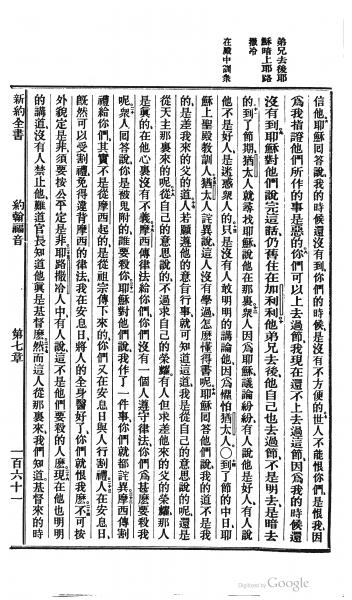 弟兄去後耶
穌暗上耶路
撒冷
在殿中訓眾
信他耶穌回答說我的時候還沒有到你們的時候是沒有不方便的世人不能恨你們是恨我因
為我指證他們所作的事是惡的你們可以上去過節我現在還不上去過這節因為我的時候還
沒有到耶穌對他們說完這話仍舊住在加利利他弟兄去後他自己也去過節不是明去是暗去
的到了節期猶太人就尋找耶穌說他在那裏眾人因為耶穌議論紛紛有人說他是好人有人說
他不是好人是迷惑眾人的只是沒有人敢明明的講論他因為懼怕猶太人〇到了節的中日耶
穌上聖殿教訓人猶太人詫異說這人沒有學過怎麼懂得書呢耶穌回答他們說我的道不是我
的是差我來的父的道人若願遵他的意旨行事就可知道這道我是從自己的意思說的呢還是
從天主那裏來的呢從自己的意思說的不過求自己的榮耀有人但求差他來的父的榮耀那人
是真的在他心裏沒有不義摩西傳律法給你們你們沒有一個人遵守律法你們為甚麼要殺我
呢眾人回答說你是被鬼附的誰要殺你耶穌對他們說我作了一件事你們就都詫異摩西傳割
禮給你們其實不是從摩西起的是從祖宗傳下來的你們又在安息日與人行割禮人在安息日
既然可以受割禮免得違背摩西的律法我在安息日將人的全身醫好了你們就恨我麼不可按
外貌定是非須要按公平定是非耶路撒冷人中有人說這不是他們要殺的人麼現在他也明明
的講道沒有人禁止他難道官長知道他真是基督麼然而這人從那裏來我們知道基督來的時
新約全書
約翰福音
第七章
一百六十一
Digitized by Google